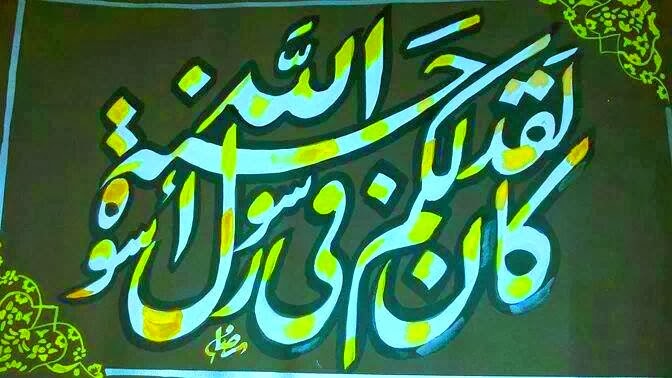 لَقَد كان لكم في رسول اللَّه أسوة حَسنة